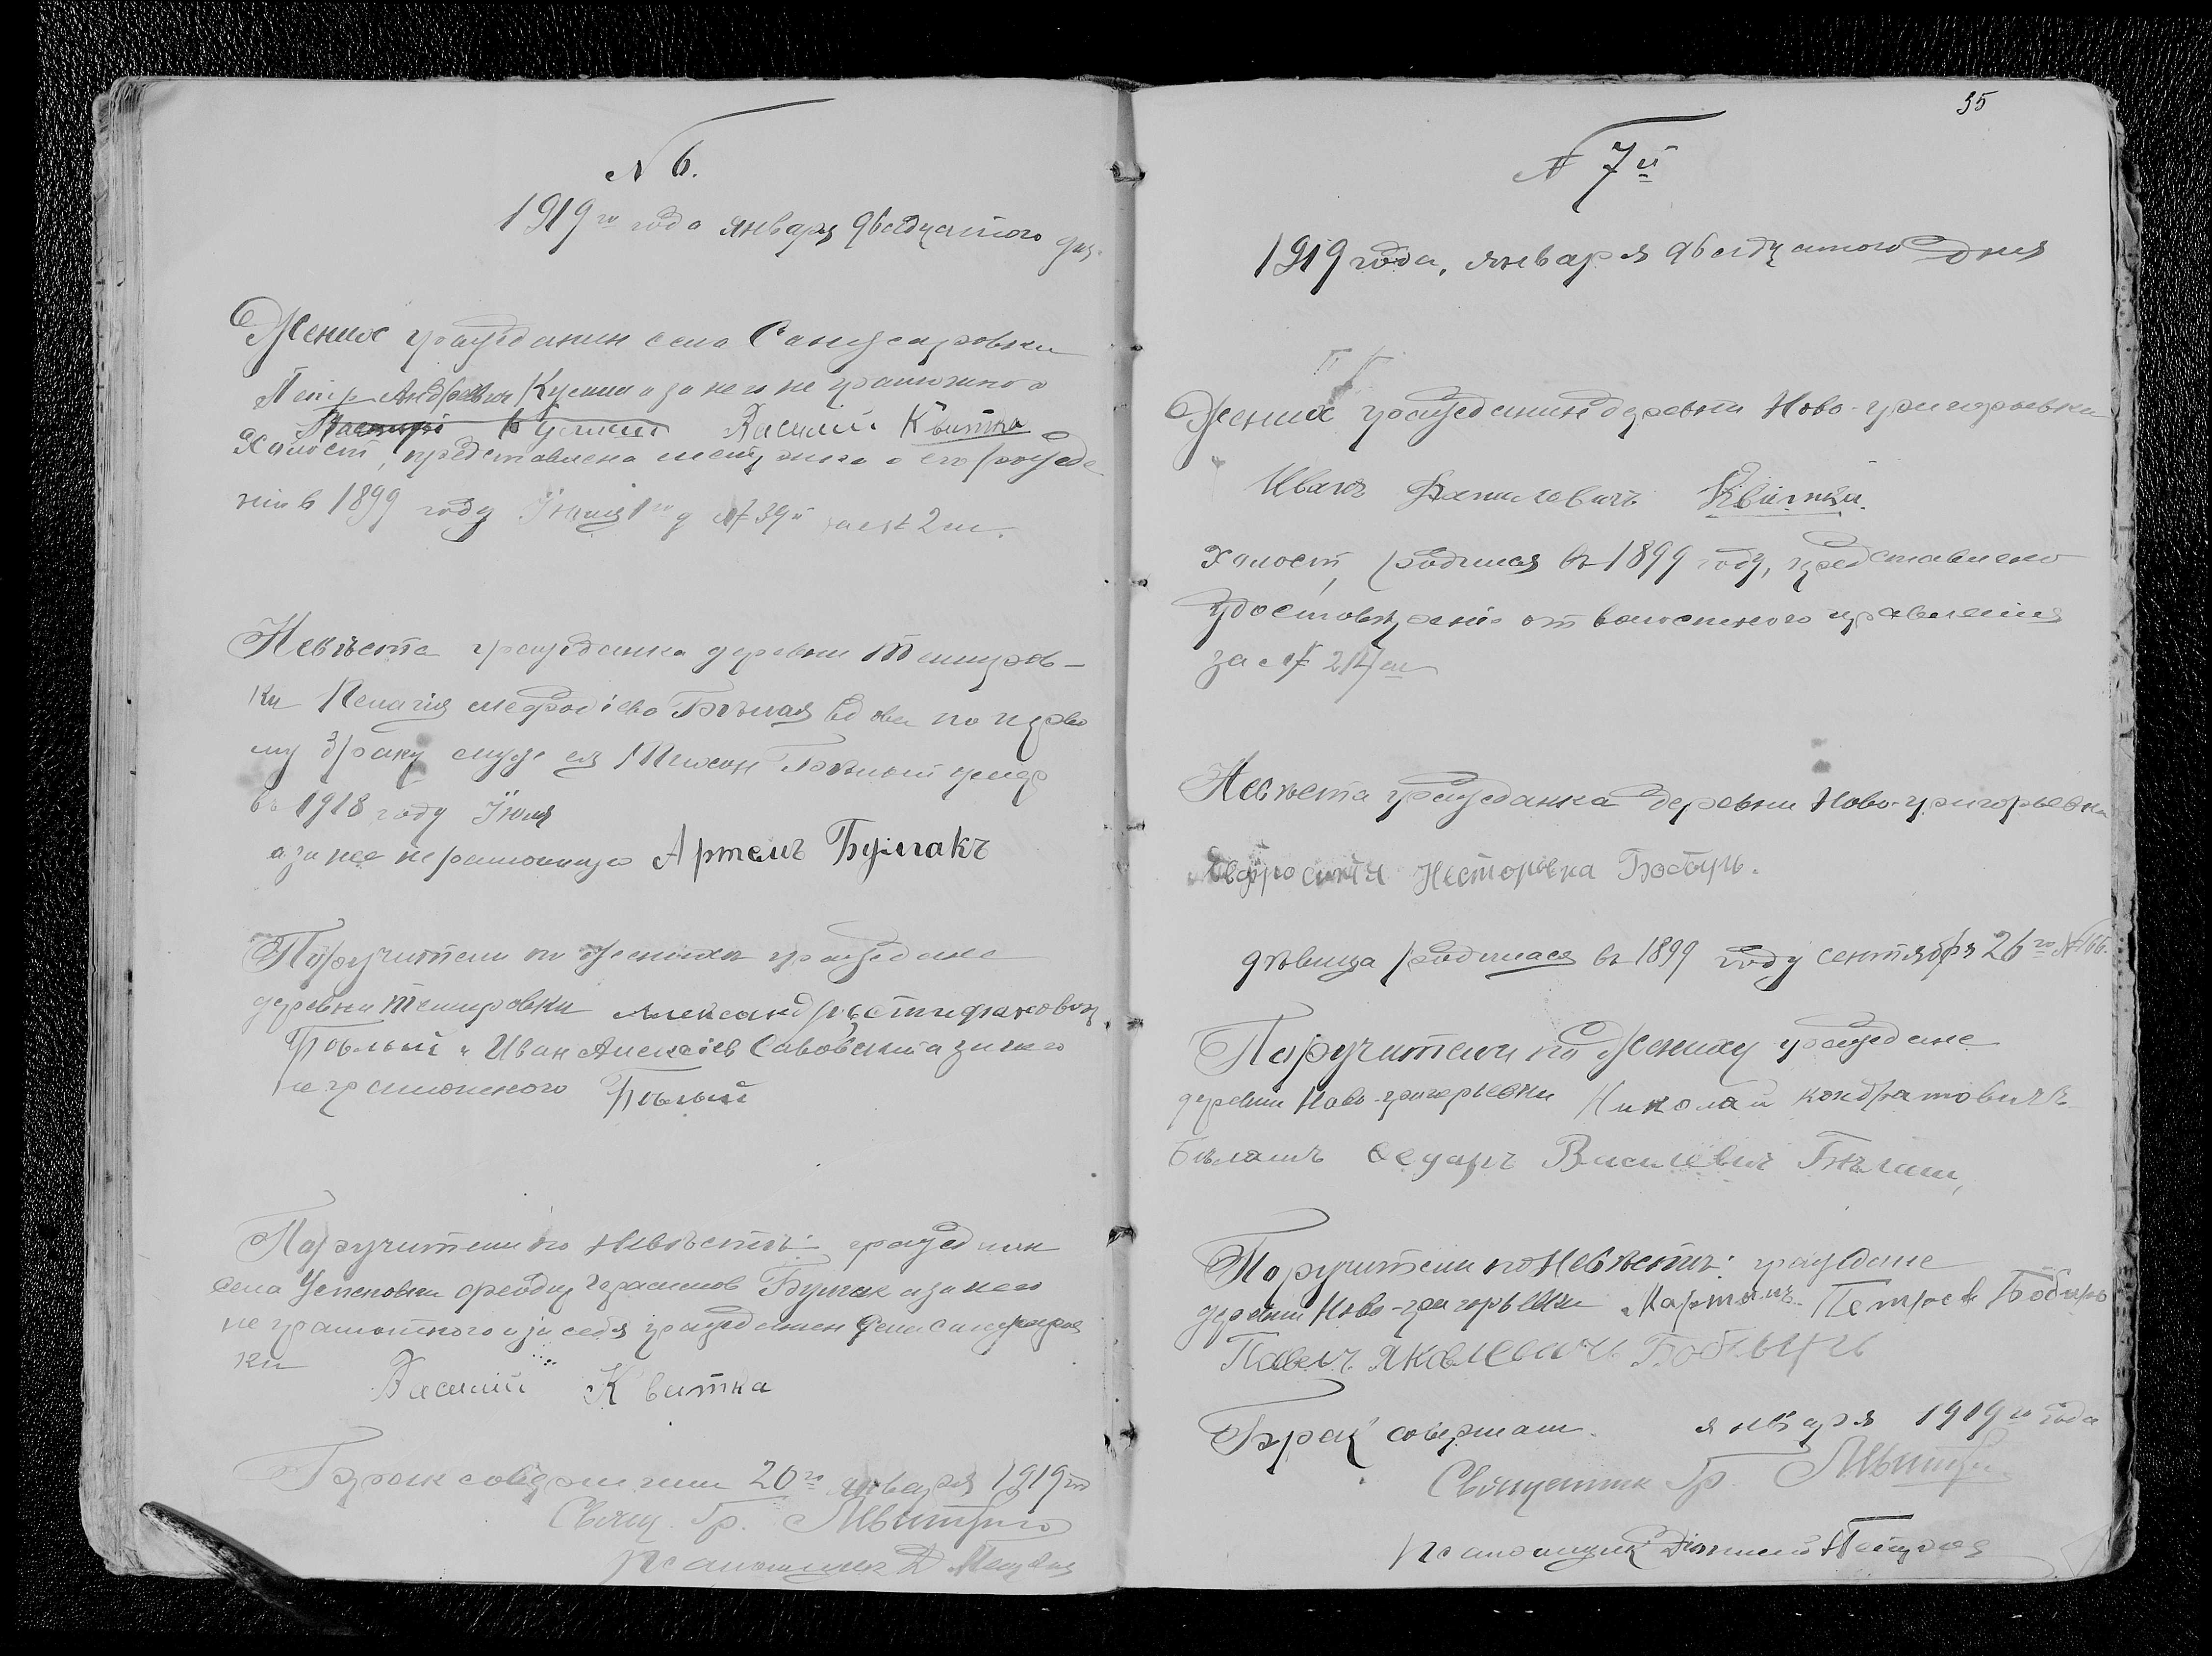 N 6.
1919го года января двадцатого дня.
Жених гражданин села Санжаровки
Петр Андреевич а за него не грамотного
Василий Квитка
Холост, представлена метрика о его рожде
нии в 1899 году Июня 1го № 39й
Невѣста гражданка деревни Темиров-
ки Пелагия Бѣлая вдова по перво
му браку муж ея Бѣлый умер
въ 1918 году Июля
а за нее неграмотную Артемъ Бурлакъ
Поручители по женихѣ граждане
деревни Темировки Александр Стифанович
Бѣлый и Иван Алексѣев Савовский а за него
не грамотного Бѣлый
Поручители по Невѣстѣ: гражданин
села Успеновки Герасимов а за него
не грамотного и за себя гражданин села Санжаров
ки Василий Квитка
Брак совершен 20го января 1919го
Свящ. Гр.
Псаломщик Д.
35
№ 7й
1919 года, января двадцатого дня
Жених гражданин деревни Ново-григорьевки
Иванъ Даниловичъ Квітный.
Холост, родился въ 1899 году, представлено
удостовѣрение от волостного правления
за №
Невѣста гражданка деревни Ново-григорьевки
Евфросиния Несторовна Бобырь.
дѣвица родилася въ 1899 году сентября 26го
Поручители по Жениху граждане
деревни Ново-григорьевки Николай Кондратовичъ
Бѣлашъ Федаръ Василевич Бѣлаш,
Поручители по Невѣстѣ: граждане
деревни Ново-григорьевки Петров Бобырь
Павелъ Яковлевичъ Бобырь
Брак совершен. января 1919го года
Священник Гр.
Псаломщик